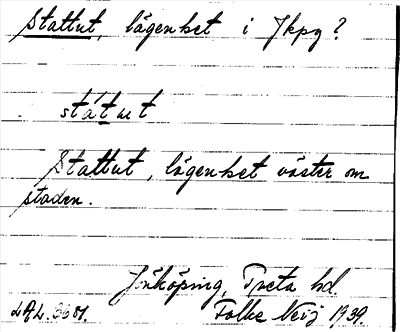 Stattut, lägenhet i Jkpg?
státut
Stattut, lägenhet väster om
staden.
Jönköping, Tveta hd
Folke Neij 1939.